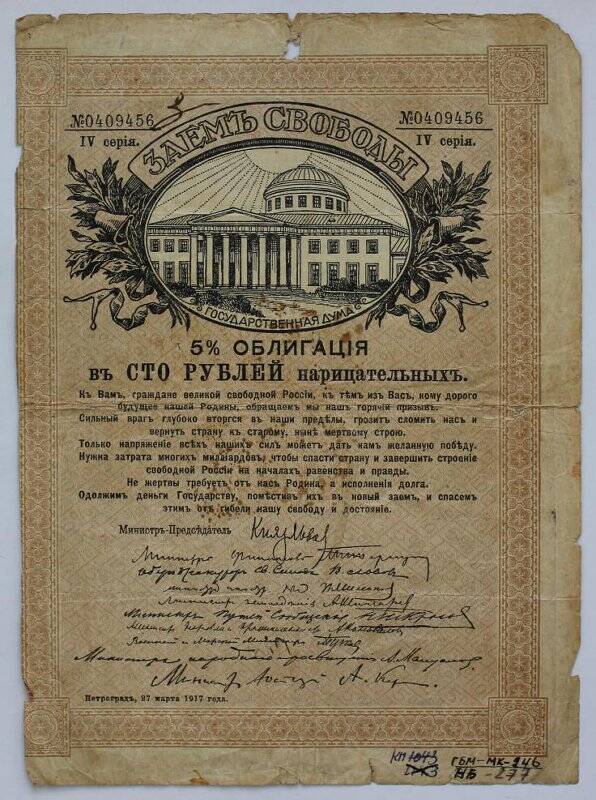 №0409456
№0409456
IV серія.
IV серія.
ЗАЕМЪ СВОБОДЫ
ГОСУДАРСТВЕННАЯ ДУМА
5% ОБЛИГАЦІЯ
въ СТО РУБЛЕЙ нарицательныхъ.
Къ Вамъ, граждане великой свободной Россіи, къ тѣмъ изъ Васъ, кому дорого
будущее нашей Родины, обращаемъ мы нашъ горячій призывъ.
Сильный врагъ глубоко вторгся въ наши предѣлы, грозитъ сломить насъ и
вернуть страну къ старому, нынѣ мертвому строю.
Только напряженіе всѣхъ нашихъ силъ можетъ дать намъ желанную побѣду.
Нужна затрата многихъ милліардовъ, чтобы спасти страну и завершить строеніе
свободной Россіи на началахъ равенства и правды.
Не жертвы требуетъ отъ насъ Родина, а исполненія долга.
Одолжимъ деньги Государству, помѣстивъ ихъ въ новый заемъ, и спасемъ
этимъ отъ гибели нашу свободу и достояніе.
Министръ-Предсѣдатель Князь Львов
Министръ Финансовъ
Оберъ Прокуроръ Св. Синода В. Львовъ
Министръ земледѣлія А. Шингаревъ
Министръ Путей Сообщенія
Министръ Торговли и Промышленности
Военный и Морской Министръ
Министръ народнаго просвѣщенія А. Мануиловъ
Министръ Юстиціи А. Кер
Петроградъ, 27 марта 1917 года.
КП 1043
ГБМ-МК-246
НБ-277